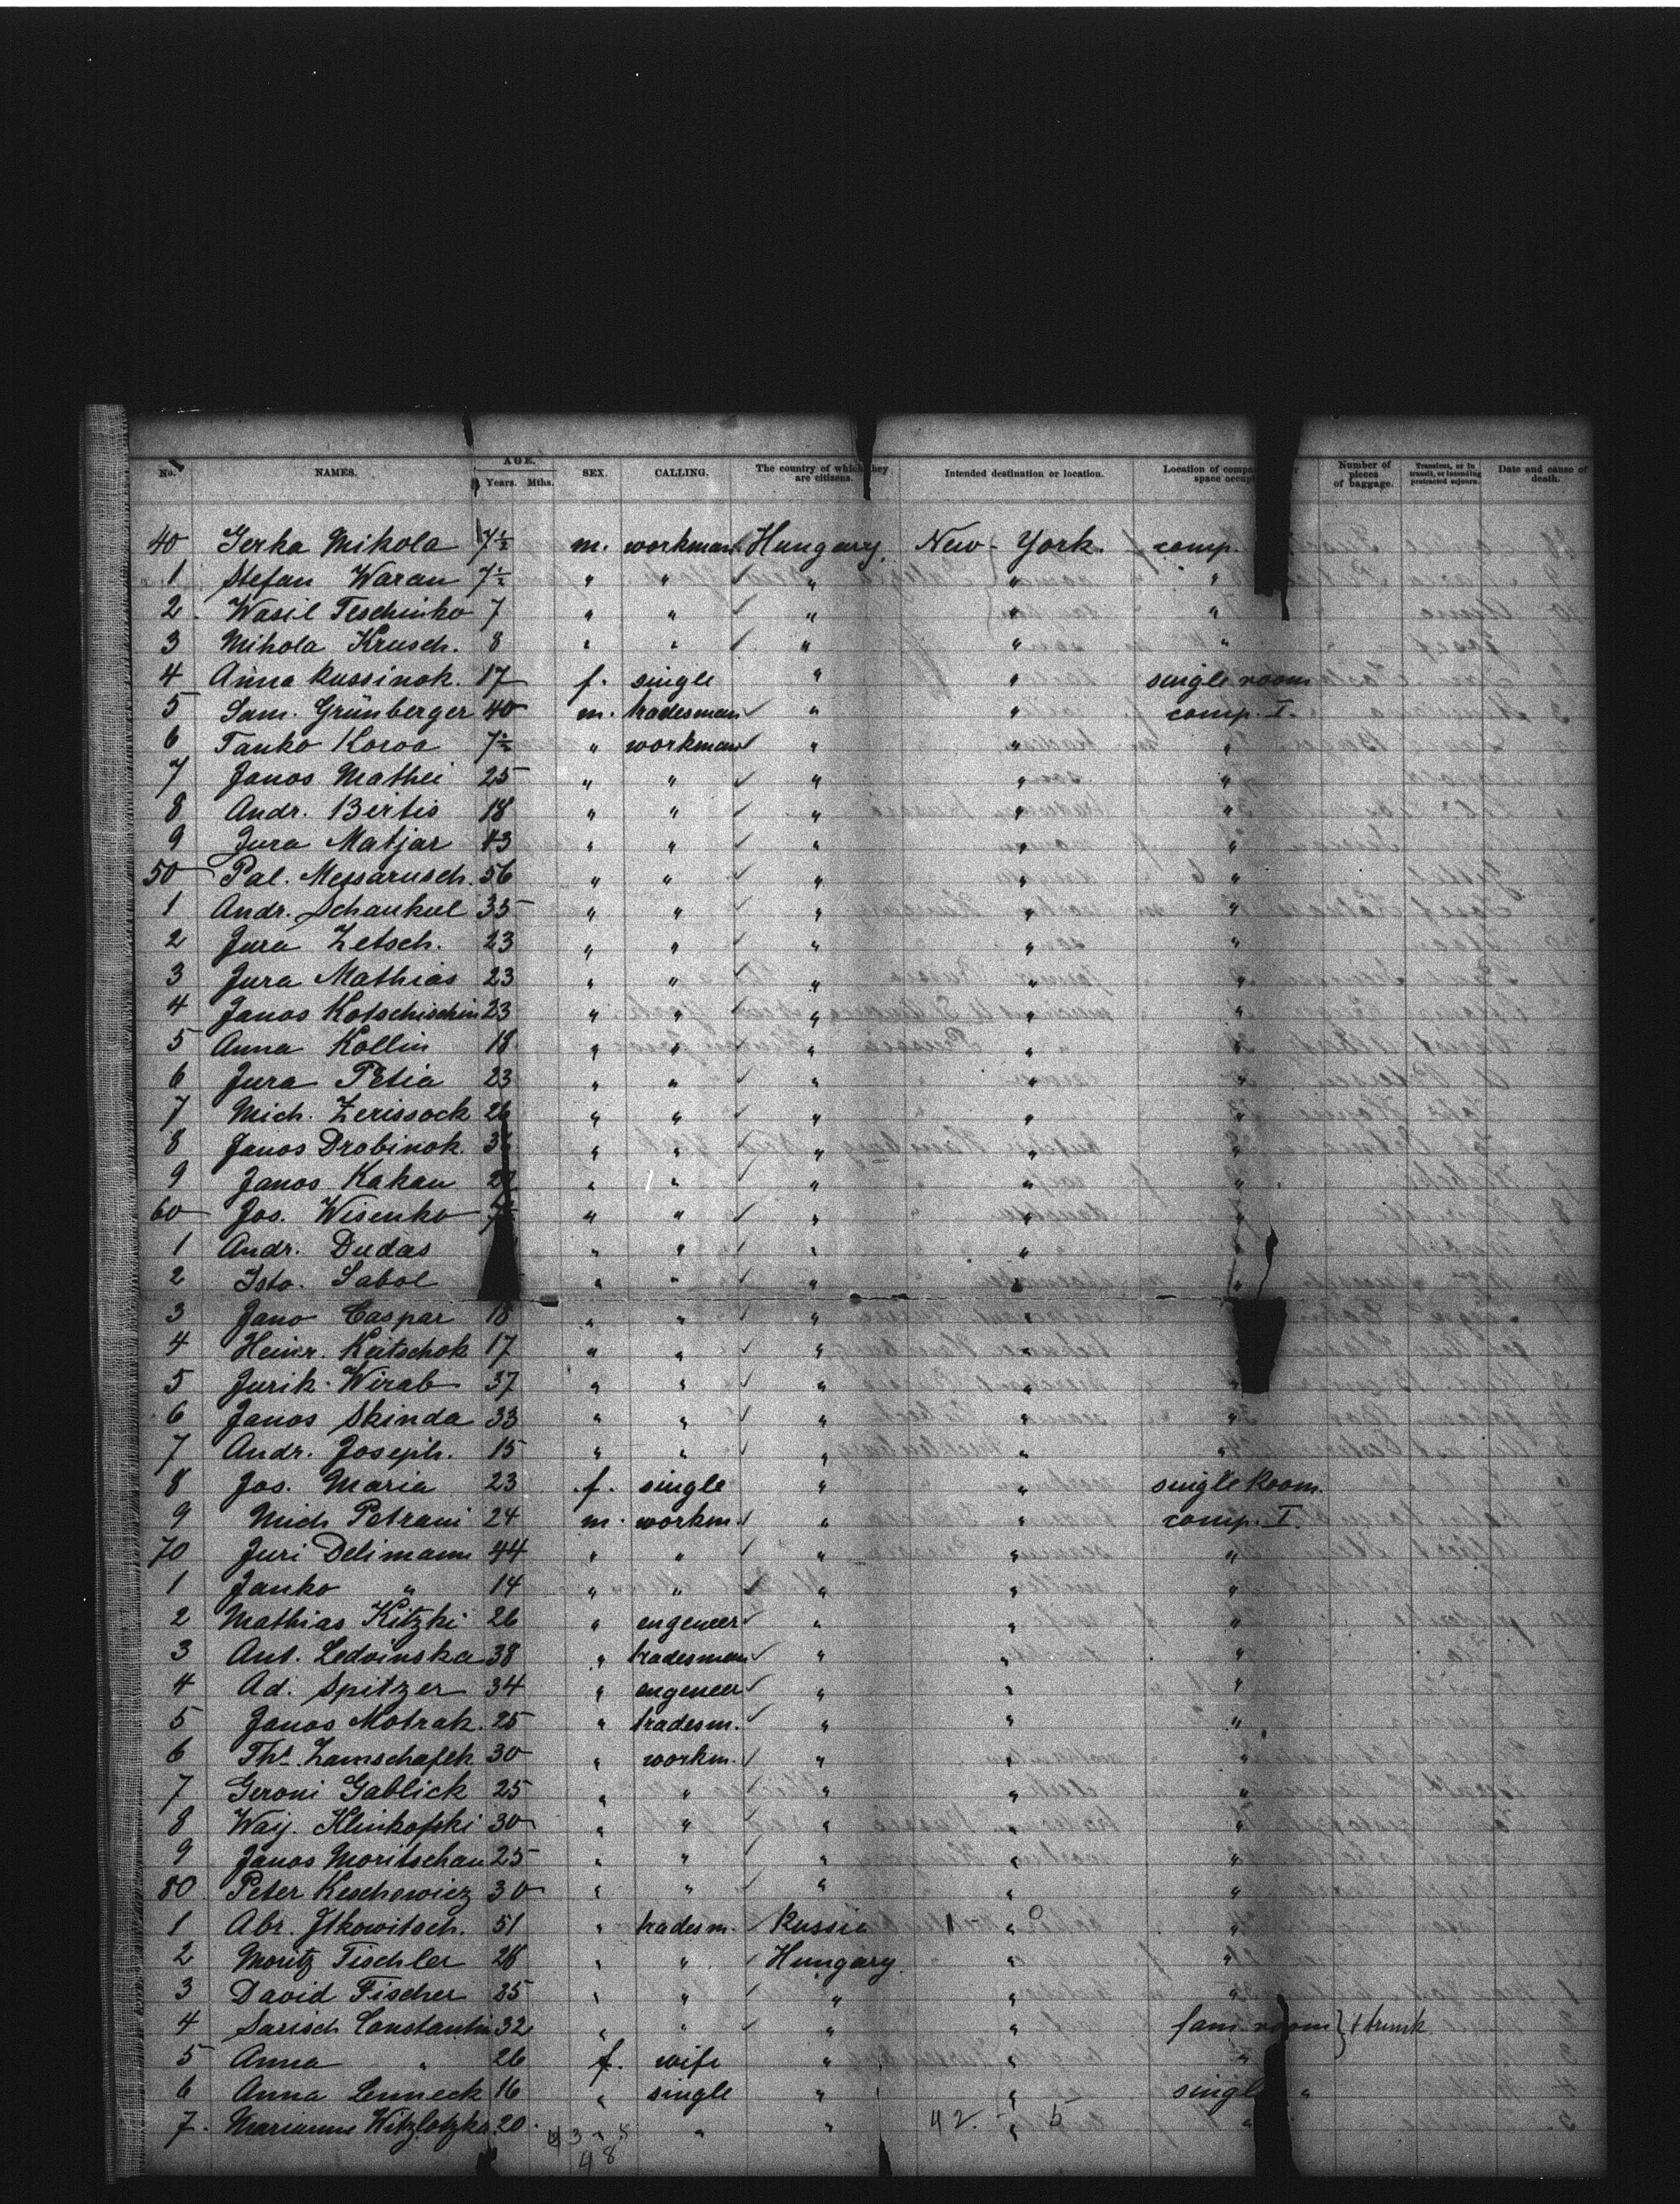 No. NAMES. AGE. Years. Mths. SEX. CALLING. The country of which they are citizens. Intended destination or location. Location of compa space occup Number of pieces of baggage. Transient, or in transit, or intending protracted sojourn. Date and cause of death.
40 Jerka Mikola 7½ m. workman Hungary. New-York. comp.
1 Stefan Waran 7½ " " " " "
2 Wasil Teschinko 7 " " " " "
3 Mihola Krusch. 8 " " " " "
4 Anna Russinok. 17 f. single " " single room
5 Sam. Grünberger 40 m. tradesman " " comp. I.
6 Tanko Koroa 7½ " workman " " "
7 Janos Mathei 25 " " " " "
8 Andr. Bertis 18 " " " " "
9 Jura Matjar 43 " " " " "
50 Pal. Messarusch. 56 " " " " "
1 Andr. Schankul 35 " " " " "
2 Jura Zetsch. 23 " " " " "
3 Jura Mathias 23 " " " " "
4 Janos Kotschischin 23 " " " " "
5 Anna Kollin 18 " " " " "
6 Jura Petia 23 " " " " "
7 Mich. Zerissock 26 " " " " "
8 Janos Drobinok. " " " " "
9 Janos Kakan " " " " "
60 Jos. Wisenko " " " " "
1 Andr. Dudas " " " " "
2 Isto. Sabol " " " " "
3 Jano Caspar 18 " " " " "
4 Heinr. Keitschok 17 " " " "
5 Jurik Wirab 37 " " " " "
6 Janos Skinda 33 " " " " "
7 Andr. Joseph. 15 " " " " "
8 Jos. Maria 23 f. single " " single Room.
9 Mich Petrani 24 m. workm. " " comp. I.
70 Juri Delimann 44 " " " " "
1 Janko " 14 " " " " "
2 Mathias Kitzki 26 " engeneer " " "
3 Ant. Ledvinska 38 " tradesman " " "
4 Ad. Spitzer 34 " engeneer " " "
5 Janos Motrak. 25 " tradesm. " " "
6 Ths. Zamschafek 30 " workm. " " "
7 Geroni Gablick 25 " " " " "
8 Way. Klinkofski 30 " " " " "
9 Janos Moritschan 25 " " " " "
80 Peter Keschewicz 30 " " " " "
1 Abr. Itkowitsch. 51 " tradesm. Russia " "
2 Moritz Tischler 28 " " Hungary. " "
3 David Fischer 35 " " " " "
4 Sarisch Constantin 32 " " " " fam. room } 1 trunk
5 Anna " 26 f. wife " " "
6 Anna Lenneck 16 " single " " single "
7. Marianne Witzlotzka. 20. " " " "
42. 5
48